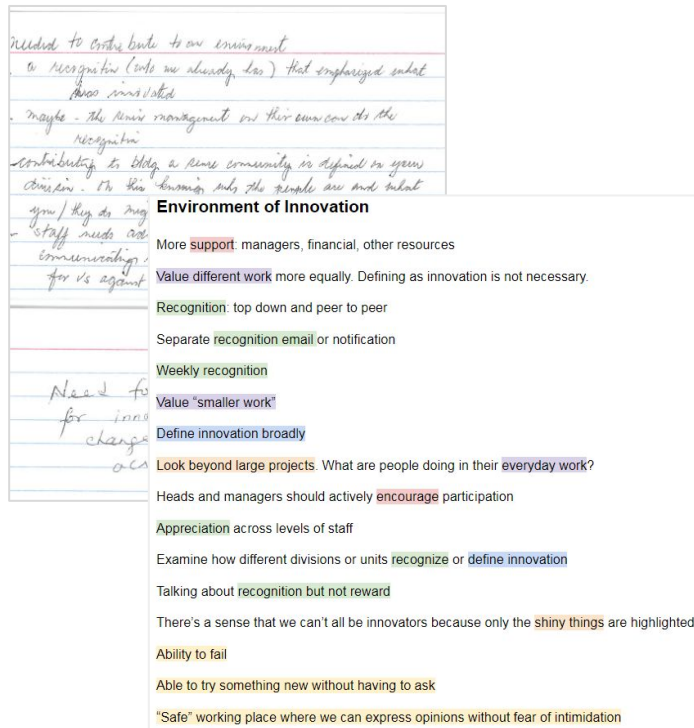 needed to contribute to an enviroment
a recognition (info we already has) that emphasized what
was innovated
maybe - the senior management on their own can do the
recognition
- contributing to bldg a sense community is defined on your
division. On this knowing who the people are and what
you / they do
- staff needs
communicating
for vs against
Need
for
change
Environment of Innovation
More support: managers, financial, other resources
Value different work more equally. Defining as innovation is not necessary.
Recognition: top down and peer to peer
Separate recognition email or notification
Weekly recognition
Value “smaller work”
Define innovation broadly
Look beyond large projects. What are people doing in their everyday work?
Heads and managers should actively encourage participation
Appreciation across levels of staff
Examine how different divisions or units recognize or define innovation
Talking about recognition but not reward
There’s a sense that we can’t all be innovators because only the shiny things are highlighted
Ability to fail
Able to try something new without having to ask
“Safe” working place where we can express opinions without fear of intimidation